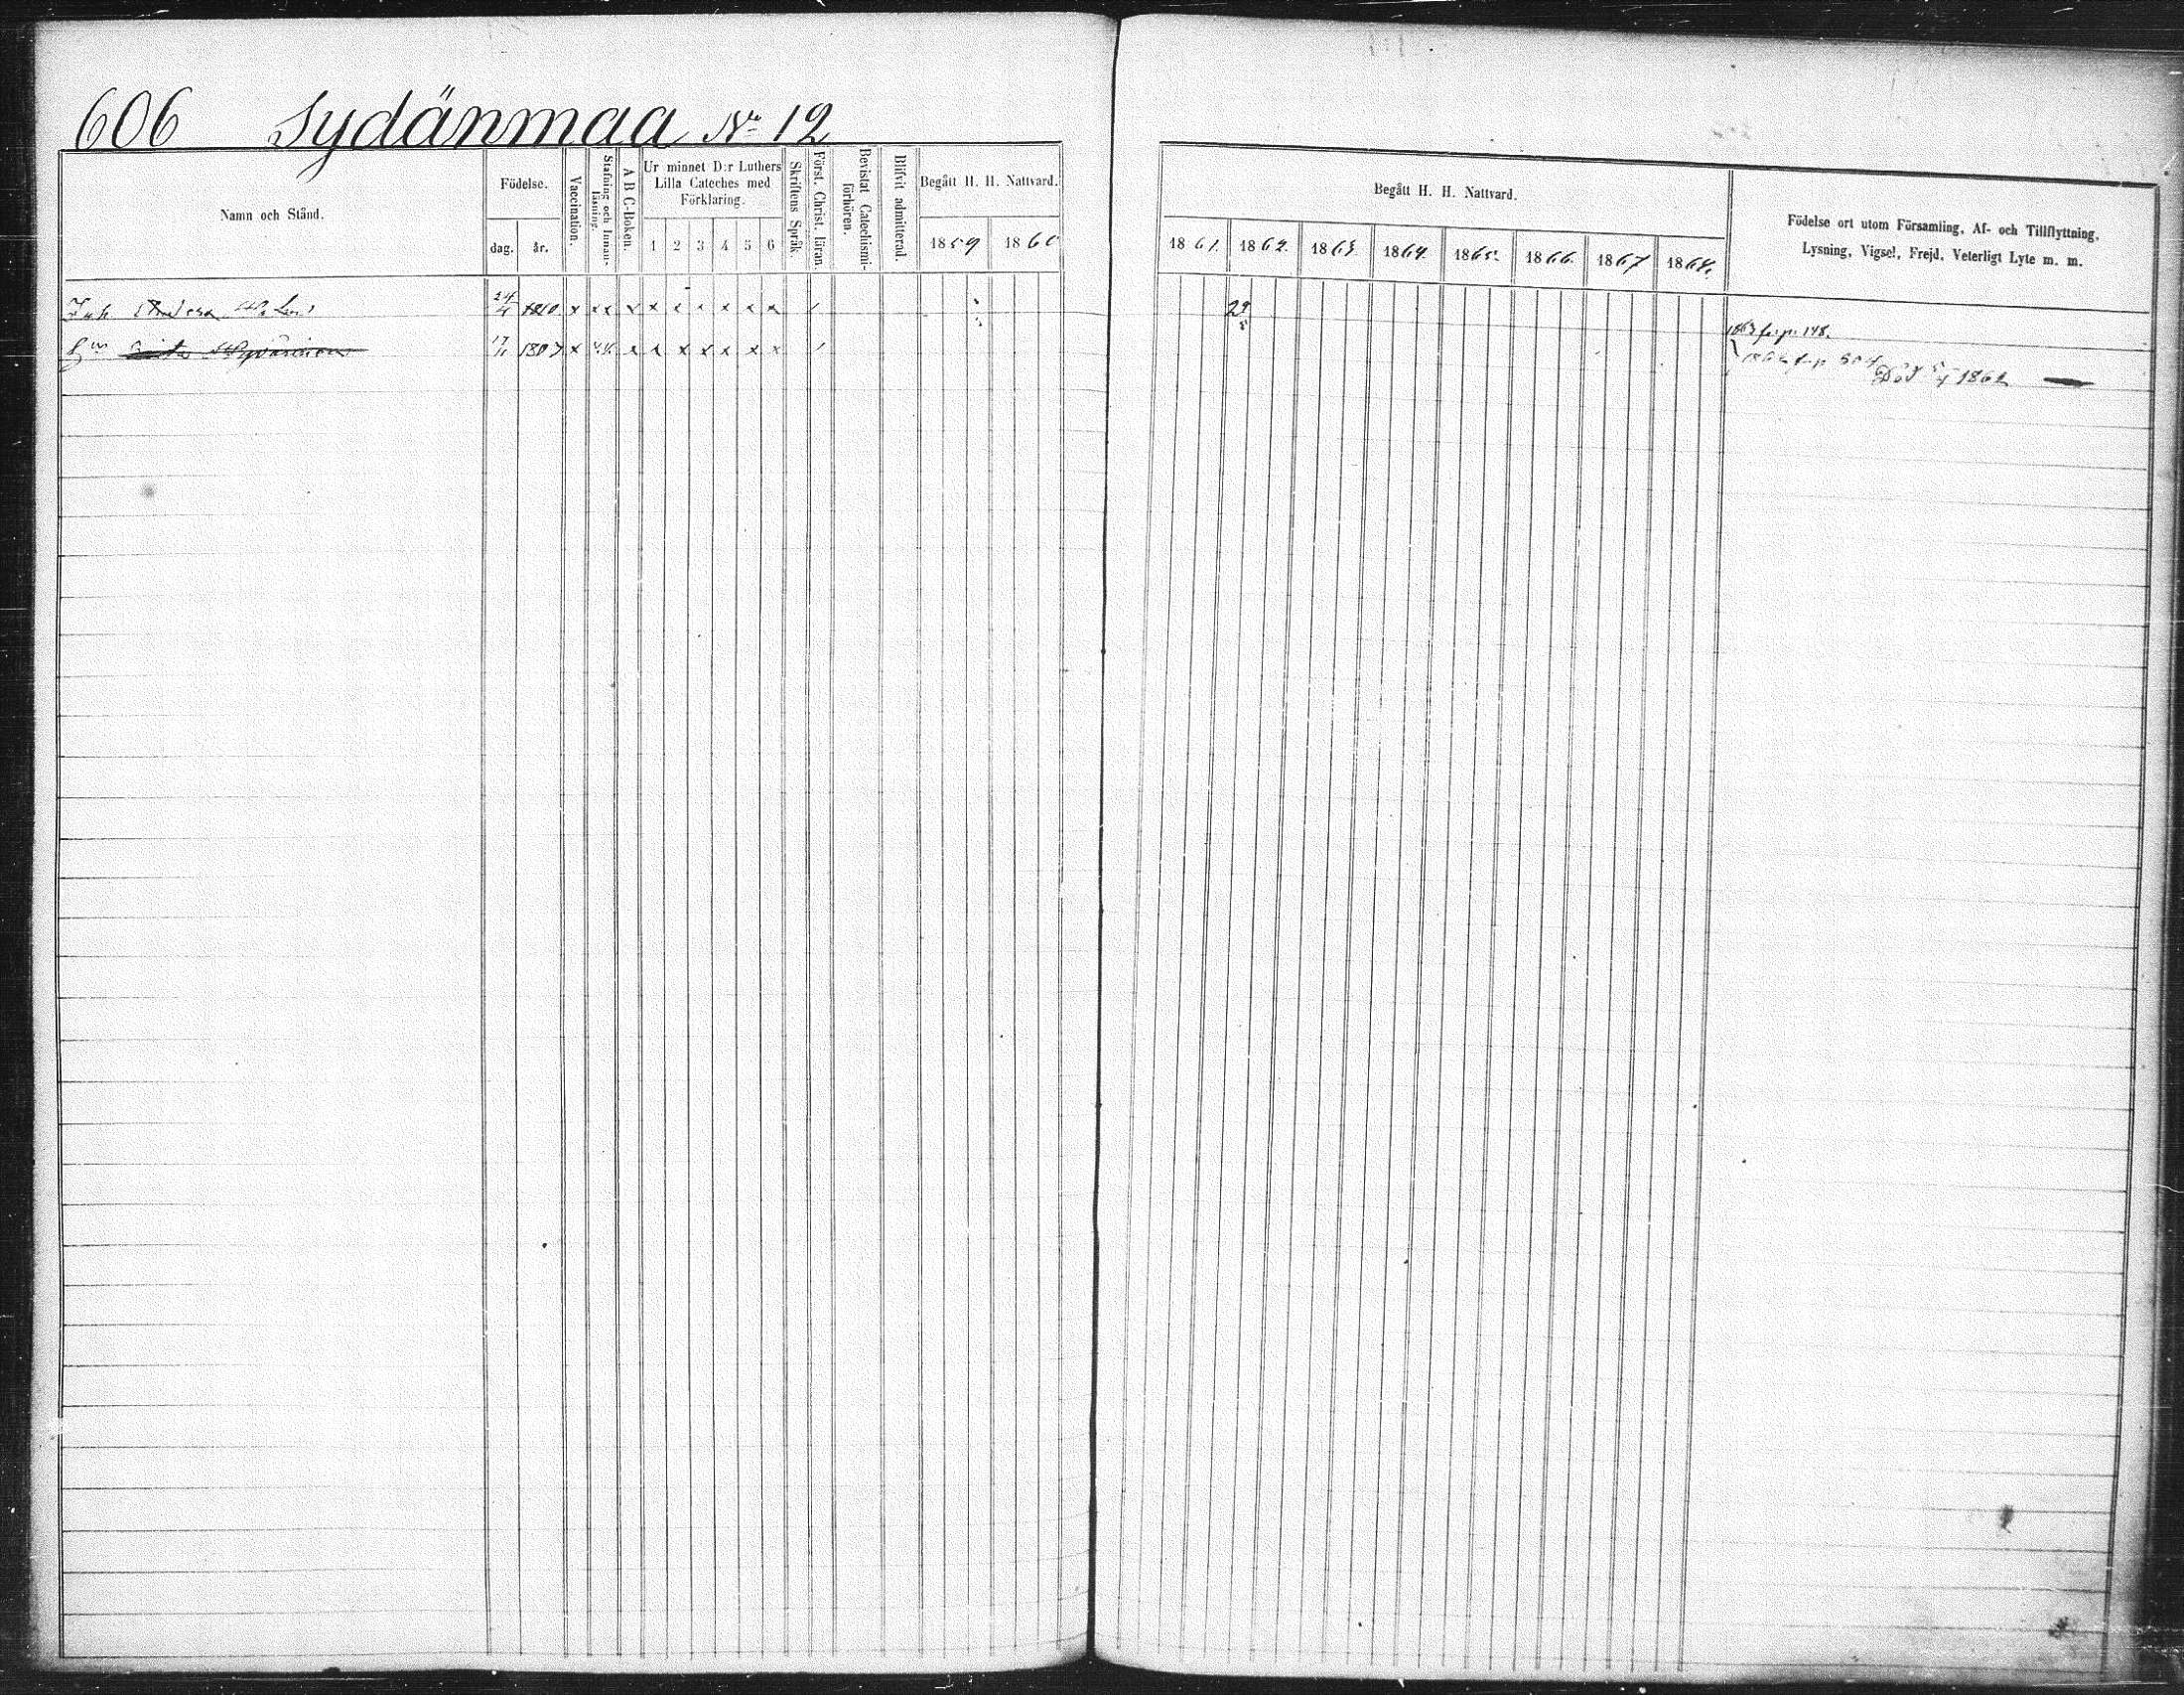 606 Sydänmaa No 12
Namn och Stånd.
Födelse.
dag.
år.
Vaccination.
Stafning och Innanläsning.
A B C-Boken.
Ur minnet D:r Luthers
Lilla Cateches med
Förklaring.
1 2 3 4 5 6
Skriftens Språk.
Först. Christ. läran.
Bevistat Catechismi-förhören.
Blifvit admitterad.
Begått H. H. Nattvard.
1859 1860
Begått H. H. Nattvard.
1861. 1862. 1863. 1864. 1865. 1866. 1867 1868.
Födelse ort utom Församling, Af- och Tillflyttning,
Lysning, Vigsel, Frejd, Veterligt Lyte m. m.
24/4 1810 x x x x x x x x x x
29
1863 fr. p. 148.
1807 x x x x x x x x x
Död 1862